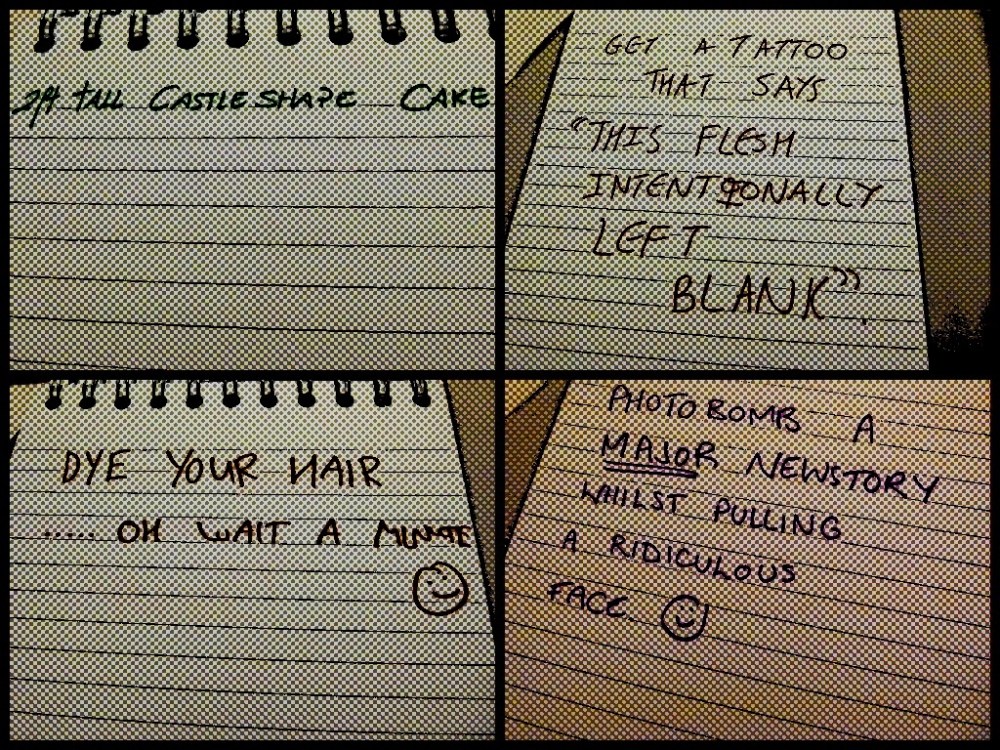 2ft tall CASTLE SHAPE CAKE
GET A TATTOO
THAT SAYS
"THIS FLESH
INTENTIONALLY
LEFT
BLANK".
DYE YOUR HAIR
..... OH WAIT A MINUTE
PHOTOBOMB A
MAJOR NEWSTORY
WHILST PULLING
A RIDICULOUS
FACE